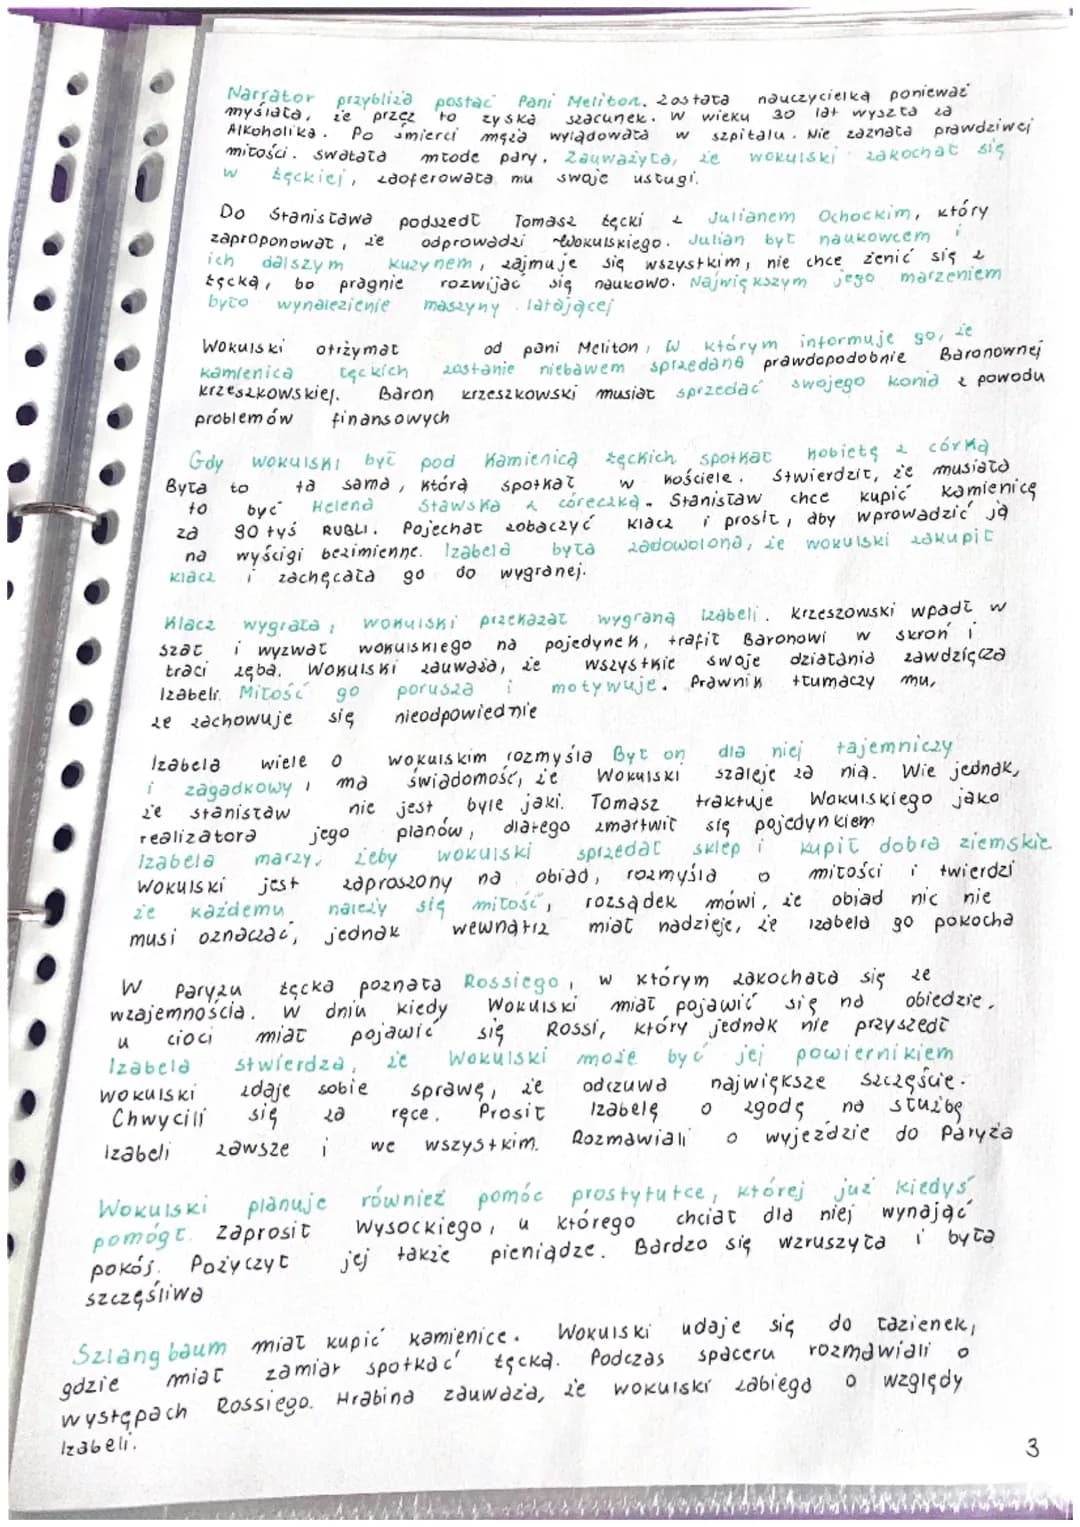 Narrator przybliża postać Pani Meliton. Została nauczycielką ponieważ
myślała, że przez to zyska szacunek. W wieku 30 lat wyszła za
Alkoholika. Po śmierci męża wylądowała w szpitalu. Nie zaznała prawdziwej
miłości. Swatała młode pary. Zauważyła, że Wokulski zakochał się
w Łęckiej, zaoferowała mu swoje usługi.
Do Stanisława podszedł Tomasz Łęcki z Julianem Ochockim, który
zaproponował, że odprowadzi Wokulskiego. Julian był naukowcem i
ich dalszym kuzynem, zajmuje się wszystkim, nie chce żenić się z
Łęcką, bo pragnie rozwijać się naukowo. Największym jego marzeniem
było wynalezienie maszyny latającej
Wokulski otrzymał od pani Meliton, w którym informuje go, że
kamienica Łęckich zostanie niebawem sprzedana prawdopodobnie Baronownej
Krzeszkowskiej. Baron Krzeszkowski musiał sprzedać swojego konia z powodu
problemów finansowych
Gdy Wokulski był pod Kamienicą Łęckich spotkał kobietę z córką
Była to ta sama, którą spotkał w kościele. Stwierdził, że musiała
to być Helena Stawska z córeczką. Stanisław chce kupić kamienicę
za 90 tyś RUBLI. Pojechał zobaczyć klacz i prosił, aby wprowadzić ją
na wyścigi bezimienne. Izabela była zadowolona, że Wokulski zakupił
klacz i zachęcała go do wygranej.
Klacz wygrała, Wokulski przekazał wygraną Izabeli. Krzeszowski wpadł w
szał i wyzwał Wokulskiego na pojedynek, trafił Baronowi w skroń i
traci zęba. Wokulski zauważa, że wszystkie swoje działania zawdzięcza
Izabeli. Miłość go porusza i motywuje. Prawnik tłumaczy mu,
że zachowuje się nieodpowiednie
Izabela wiele o Wokulskim rozmyśla Był on dla niej tajemniczy
i zagadkowy, ma świadomość, że Wokulski szaleje za nią. Wie jednak,
że Stanisław nie jest byle jaki. Tomasz traktuje Wokulskiego jako
realizatora jego planów, dlatego zmartwił się pojedynkiem
Izabela marzy, żeby Wokulski sprzedał sklep i kupił dobra ziemskie
Wokulski jest zaproszony na obiad, rozmyśla o miłości i twierdzi
że każdemu należy się miłość, rozsądek mówi, że obiad nic nie
musi oznaczać, jednak wewnątrz miał nadzieję, że Izabela go pokocha
W Paryżu Łęcka poznała Rossiego, w którym zakochała się ze
wzajemnością. W dniu kiedy Wokulski miał pojawić się na obiedzie,
u cioci miał pojawić się Rossi, który jednak nie przyszedł
Izabela stwierdza, że Wokulski może być jej powiernikiem
Wokulski zdaje sobie sprawę, że odczuwa największe szczęście.
Chwycili się za ręce. Prosił Izabelę o zgodę na służbę
Izabeli zawsze i we wszystkim. Rozmawiali o wyjeździe do Paryża
Wokulski planuje również pomóc prostytutce, której już kiedyś
pomógł. Zaprosił Wysockiego, u którego chciał dla niej wynająć
pokój. Pożyczył jej także pieniądze. Bardzo się wzruszyła i była
szczęśliwa
Szlangbaum miał kupić kamienice. Wokulski udaje się do Łazienek,
gdzie miał zamiar spotkać Łęcką. Podczas spaceru rozmawiali o
występach Rossiego. Hrabina zauważa, że Wokulski zabiega o względy
Izabeli.
3